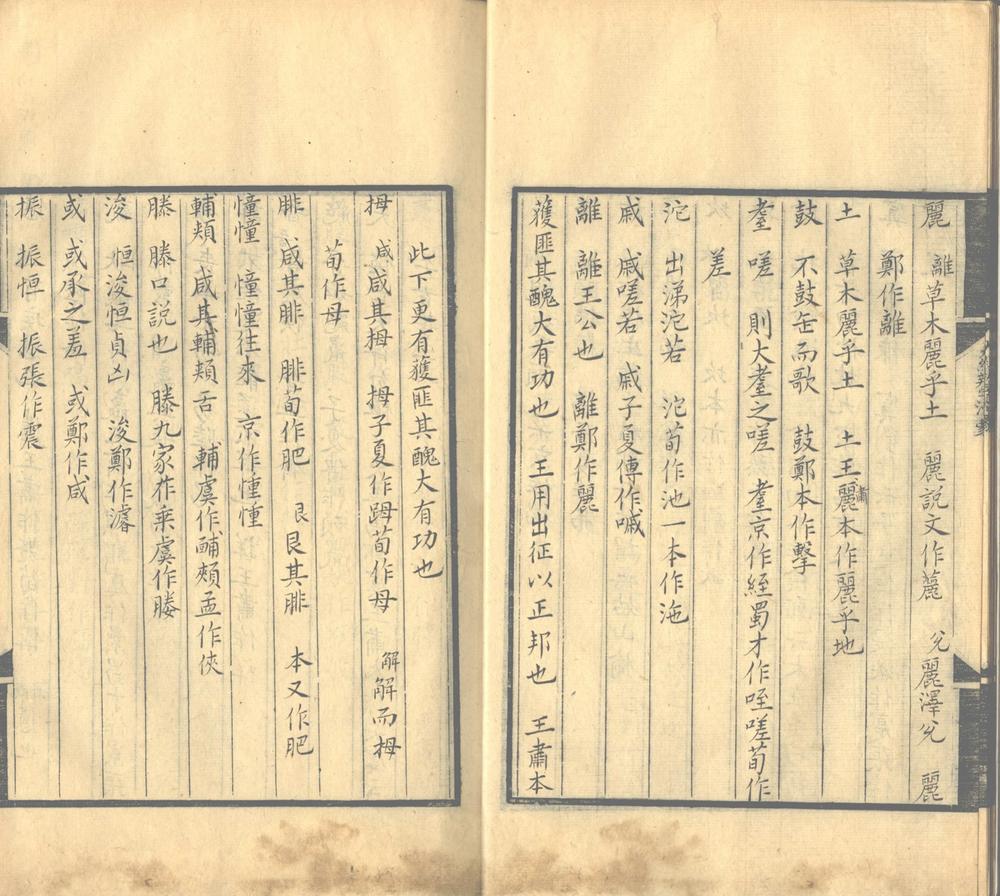 麗　離草木麗乎土　麗說文作䕻　兌麗澤兌　麗
鄭作離
土　草木麗乎土　土王肅本作麗乎地
鼓　不鼓缶而歌　鼓鄭本作擊
耋　嗟　則大耋之嗟　耋京作絰蜀才作咥嗟荀作
差
沱　出涕沱若　沱荀作池一本作沲
戚　戚嗟若　戚子夏傳作嘁
離　離王公也　離鄭作麗
獲匪其醜大有功也　王用出征以正邦也　王肅本
此下更有獲匪其醜大有功也
拇　咸咸其拇　拇子夏作䟦荀作母　解解而拇
荀作母
腓　咸其腓　腓荀作肥　艮艮其腓　本又作肥
憧憧　憧憧往來　京作㥞㥞
輔頰　咸其輔頰舌　輔虞作䩉頰孟作俠
滕　滕口說也　滕九家作乘虞作媵
浚　恒浚恒貞凶　浚鄭作濬
或　或承之羞　或鄭作咸
振　振恒　振張作震